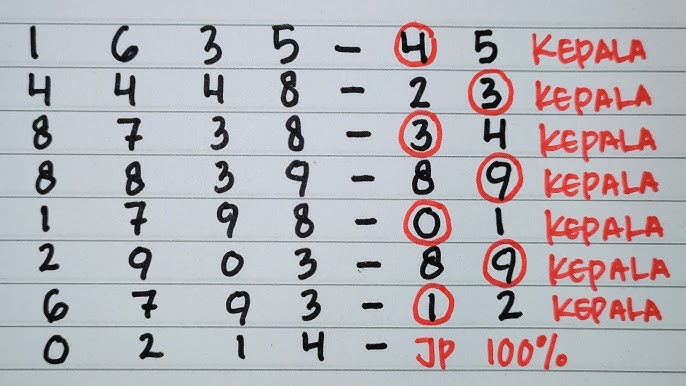 1 6 3 5 - 4 5 KEPALA
4 4 4 8 - 2 3 KEPALA
8 7 3 8 - 3 4 KEPALA
8 8 3 9 - 8 9 KEPALA
1 7 9 8 - 0 1 KEPALA
2 9 0 3 - 8 9 KEPALA
6 7 9 3 - 1 2 KEPALA
0 2 1 4 - JP 100%